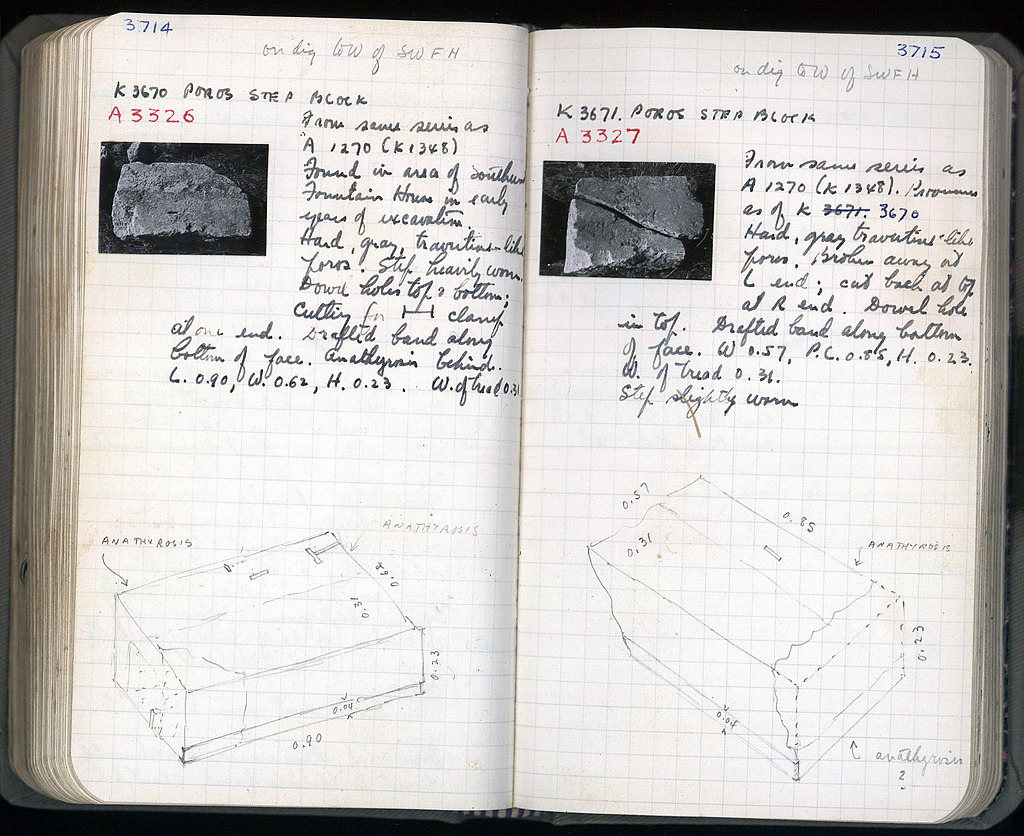 3714
on dig to W of SWFH
K 3670 POROS STEP BLOCK
A 3326
From same series as
A 1270 (K 1348)
Found in area of Southwest
Fountain House in early
years of excavation
Hard, gray, travertine-like
poros. Step heavily worn.
Dowel holes top & bottom;
Cutting for clamp
at one end. Drafted band along
bottom of face. Anathyrosis behind.
L. 0.90, W. 0.62, H. 0.23. W. of tread 0.31
ANATHYROSIS
ANATHYROSIS
0.62
0.31
0.23
0.04
0.90
3715
on dig to W of SWFH
K 3671. POROS STEP BLOCK
A 3327
From same series as
A 1270 (K 1348). Provenance
as of K 3671. 3670
Hard, gray travertine-like
poros. Broken away at
L end; cut back at top
at R end. Dowel hole
in top. Drafted band along bottom
of face. W 0.57, P.L. 0.85, H. 0.23.
W. of tread 0.31.
Step slightly worn
0.57
0.85
0.31
ANATHYROSIS
0.23
0.04
anathyrosis
?